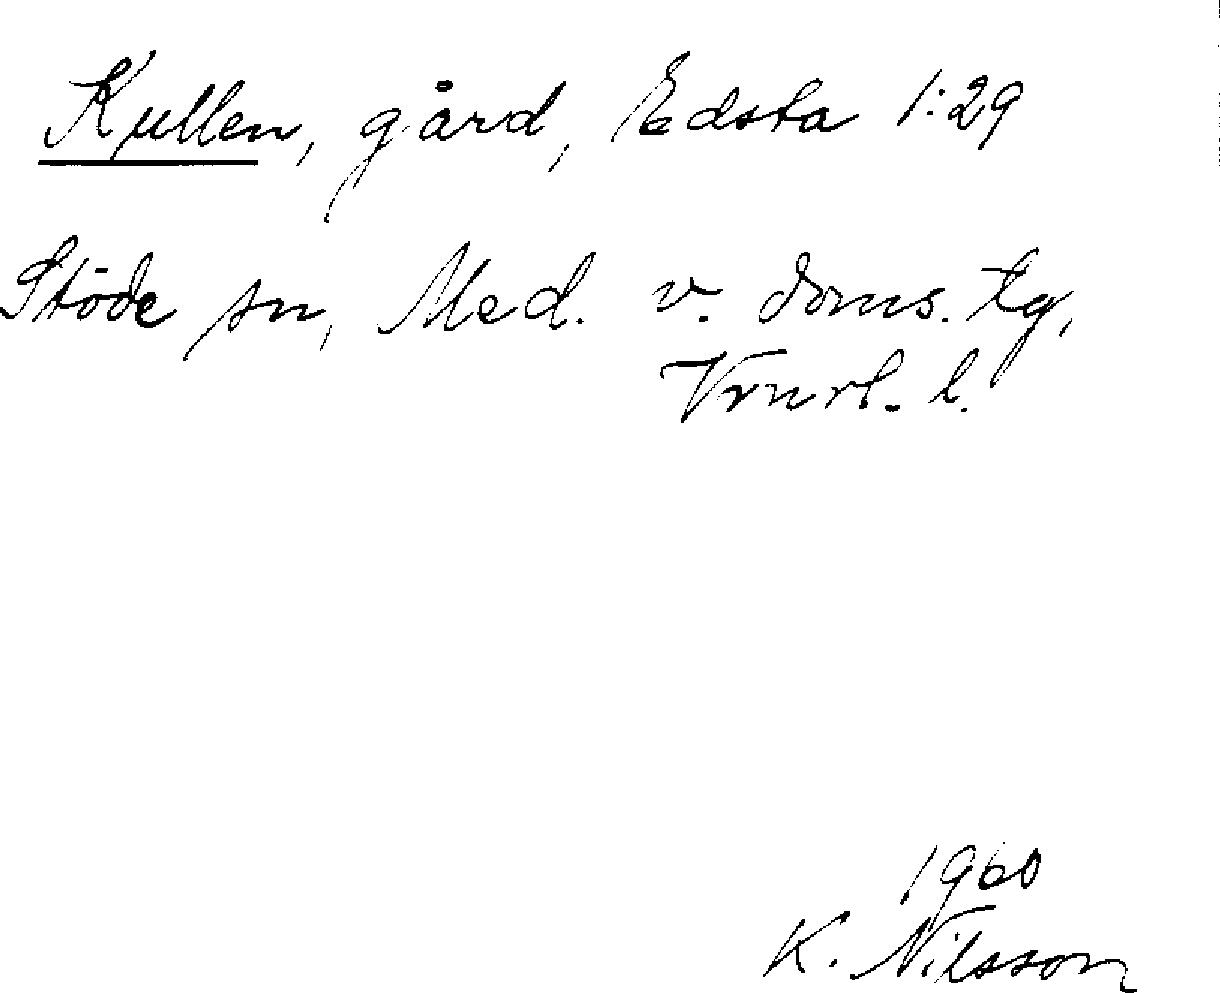 Kullen, gård, Edsta 1:29
Stöde sn, Med. v. doms. tg,
Vnrl. l.
1960
K. Nilsson